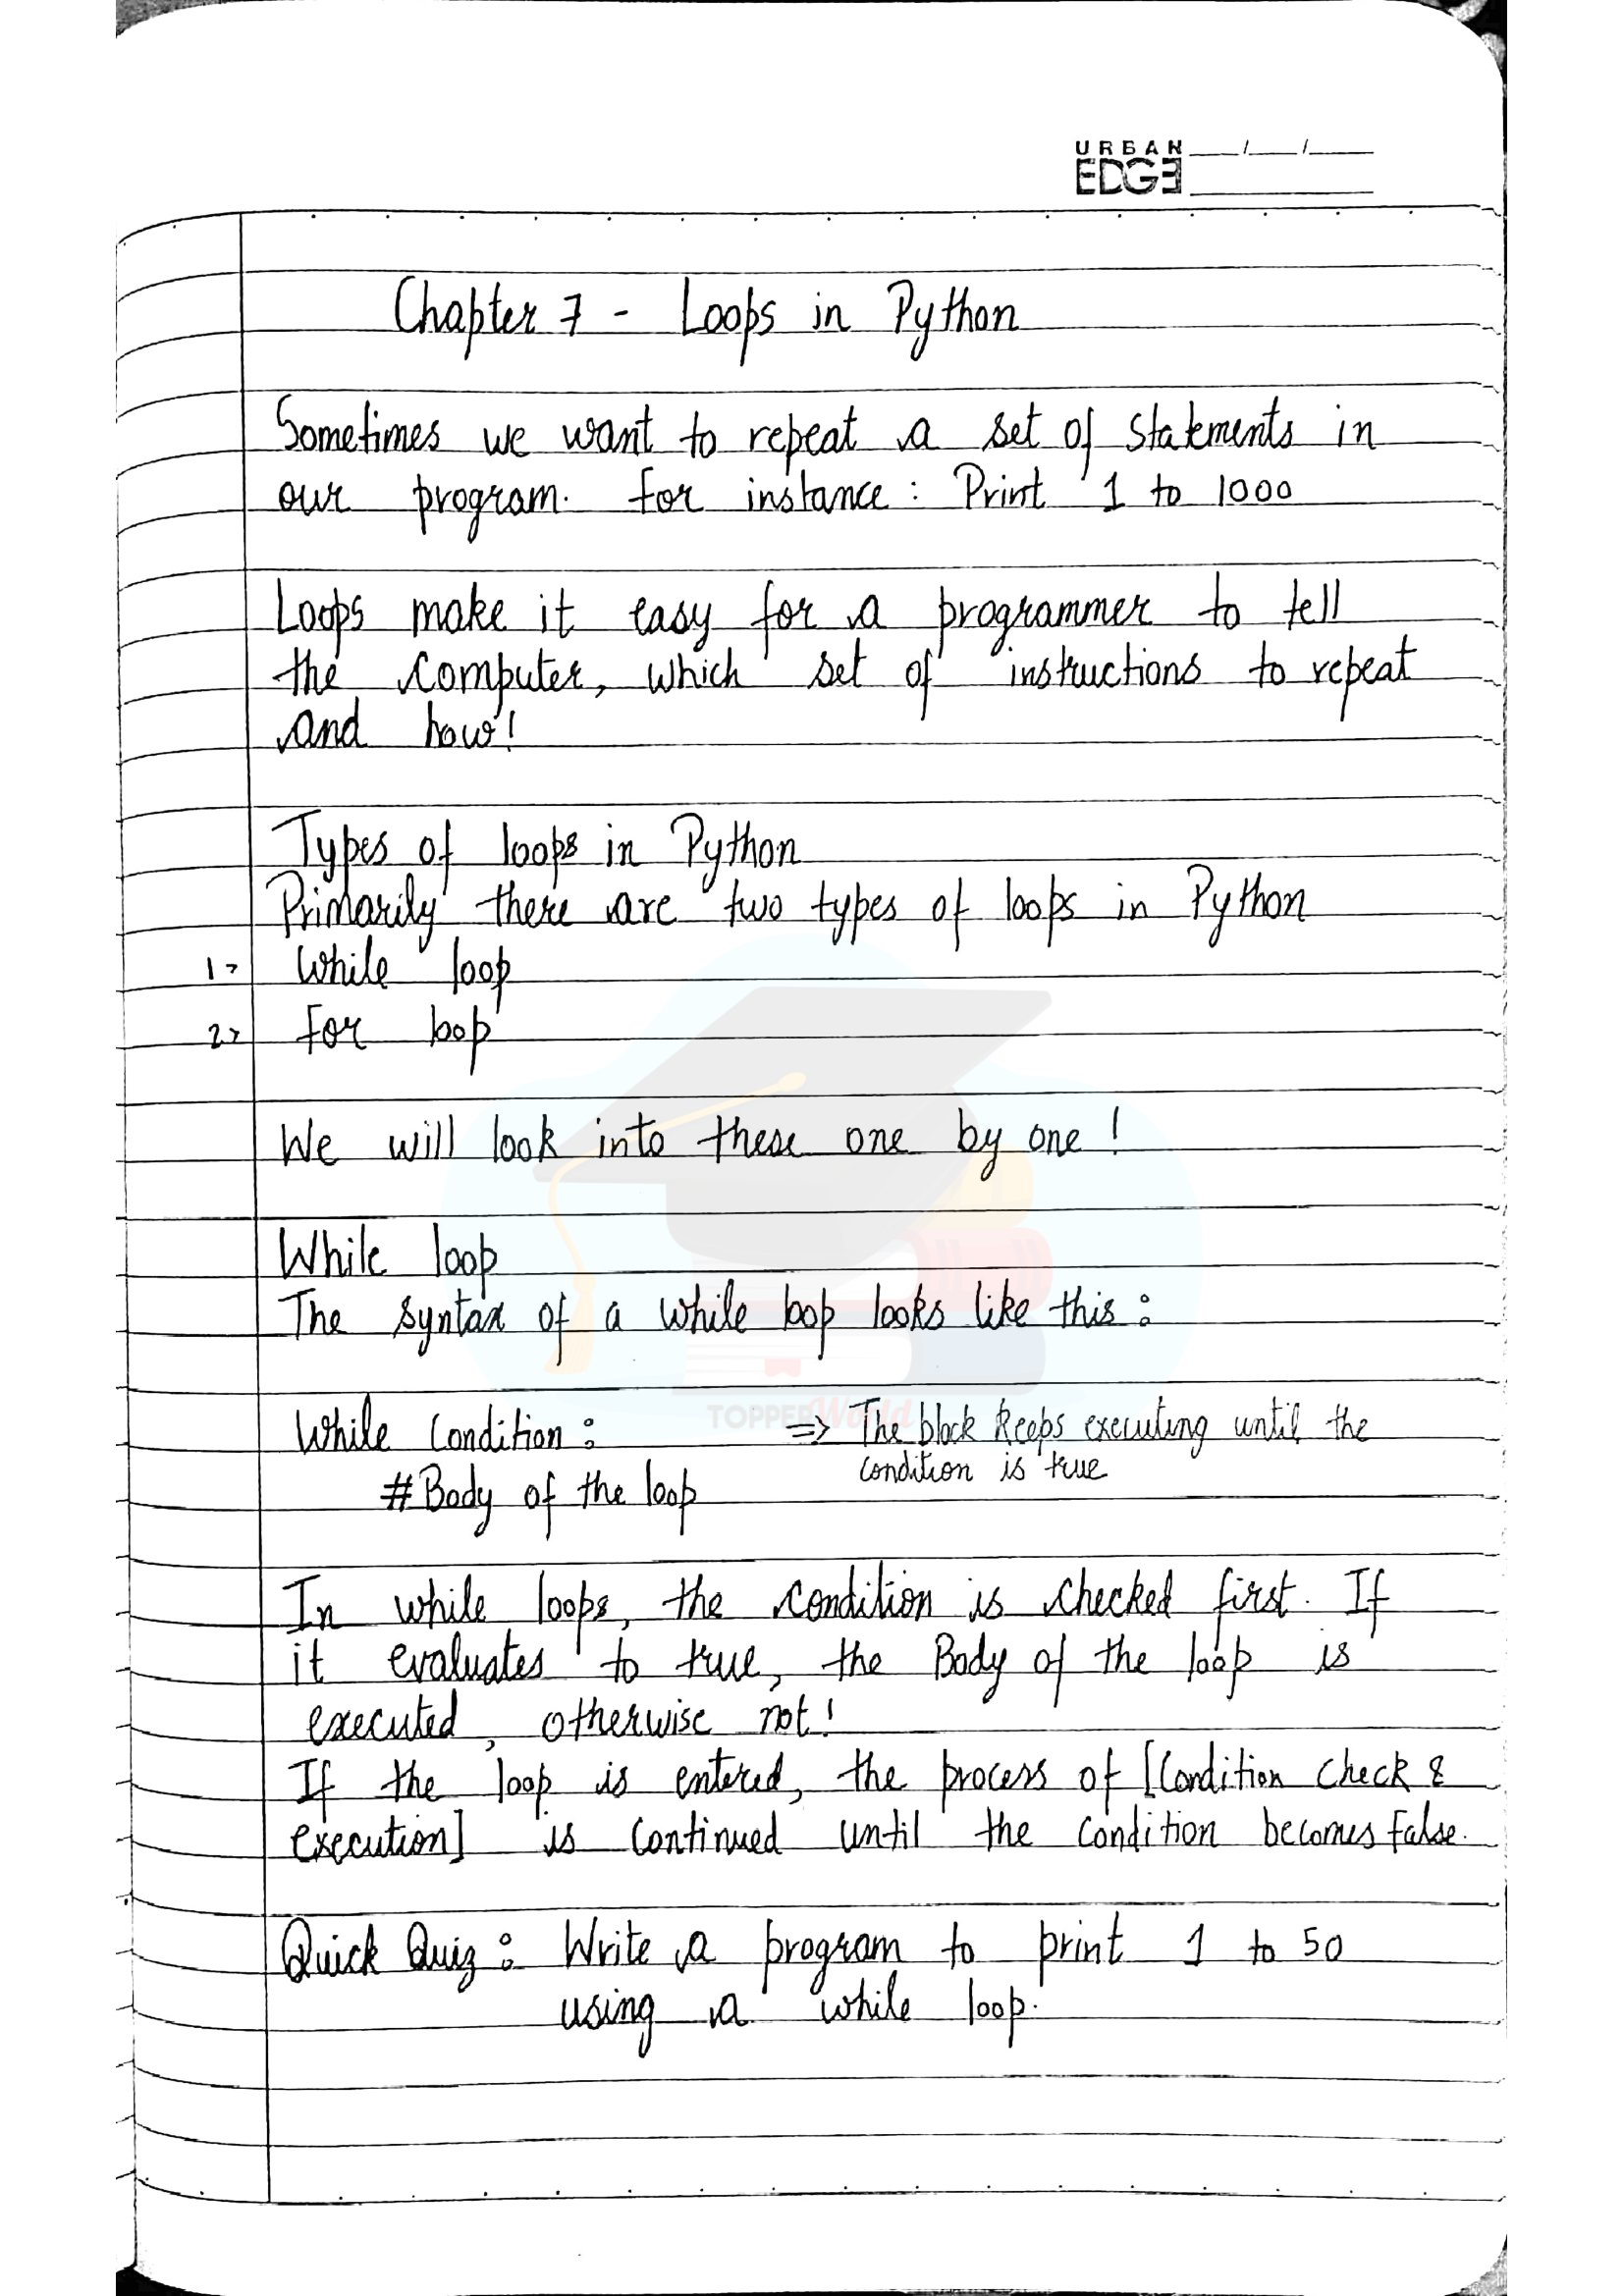 URBAN
EDGE
Chapter 7 - Loops in Python
Sometimes we want to repeat a set of statements in
our program. For instance : Print 1 to 1000
Loops make it easy for a programmer to tell
the computer, which set of instructions to repeat
and how!
Types of loops in Python
Primarily there are two types of loops in Python
1> While loop
2> for loop
We will look into these one by one !
While loop
The syntax of a while loop looks like this :
While Condition :
=> The block keeps executing until the
condition is true
# Body of the loop
TOPPERWorld
In while loops, the condition is checked first. If
it evaluates to true, the Body of the loop is
executed, otherwise not!
If the loop is entered, the process of [Condition check &
execution] is continued until the condition becomes false.
Quick Quiz : Write a program to print 1 to 50
using a while loop.